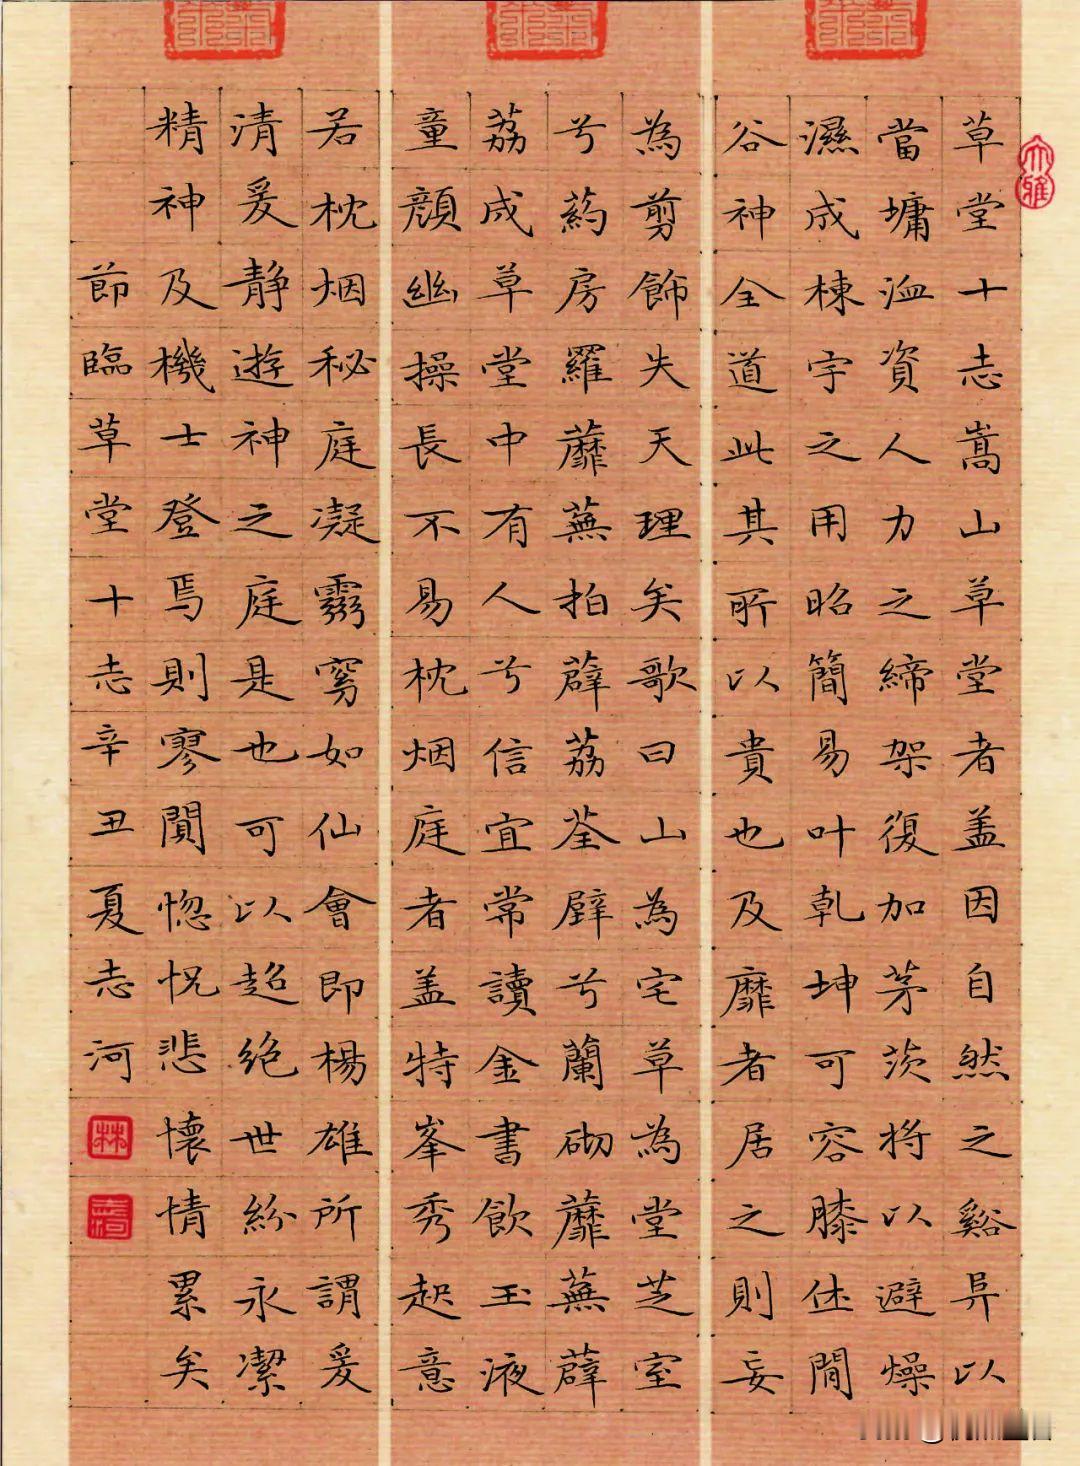 草堂十志嵩山草堂者盖因自然之谿阜以
當墉洫資人力之締架復加茅茨將以避燥
濕成棟宇之用昭簡易叶乾坤可容膝休閒
谷神全道此其所以貴也及靡者居之則妄
為剪飾失天理矣歌曰山為宅草為堂芝室
兮葯房羅蘼蕪拍薜荔荃壁兮蘭砌蘼蕪薜
荔成草堂中有人兮信宜常讀金書飲玉液
童顔幽操長不易枕烟庭者盖特峯秀起意
若枕烟秘庭凝霛窈如仙會即楊雄所謂爰
清爰静遊神之庭是也可以超絶世紛永潔
精神及機士登焉則寥闃惚怳悲懷情累矣
節臨草堂十志辛丑夏志河
大雅
林
志河